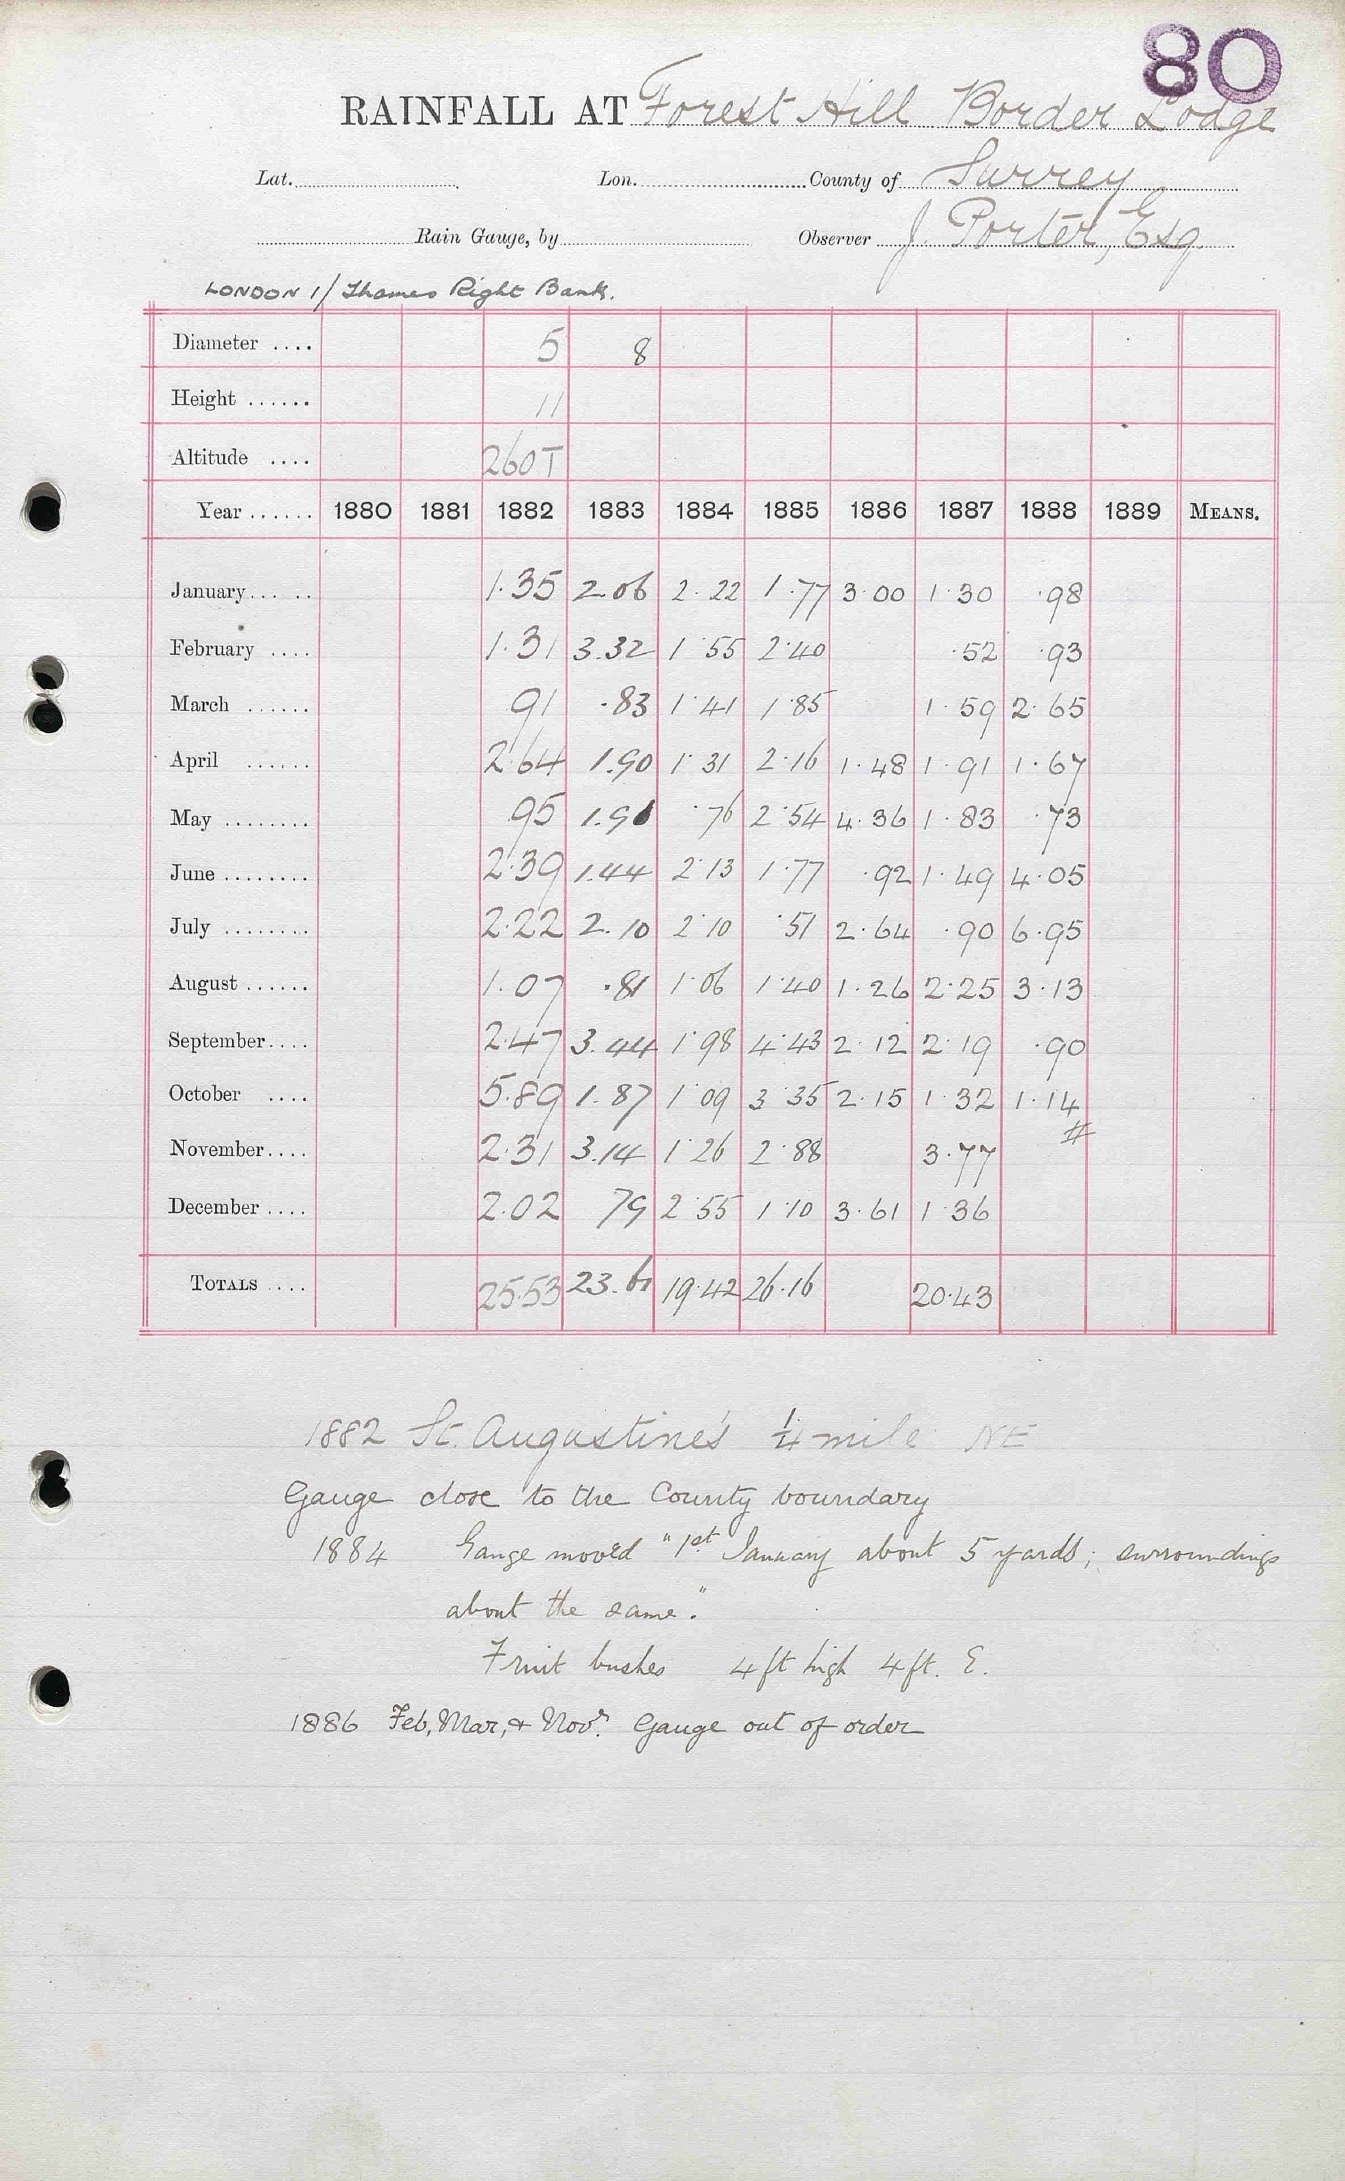 80
RAINFALL AT Forest Hill Border Lodge
Lat. Lon. County of Surrey
Rain Gauge, by Observer J. Porter, Esq
LONDON 1/ Thames Right Bank.
Diameter .... 5 8
Height ...... 11
Altitude .... 260T
Year ...... 1880 1881 1882 1883 1884 1885 1886 1887 1888 1889 MEANS.
January... .. 1.35 2.06 2.22 1.77 3.00 1.30 .98
February .... 1.31 3.32 1.55 2.40 .52 .93
March ...... 91 .83 1.41 1.85 1.59 2.65
April ...... 2.64 1.90 1.31 2.16 1.48 1.91 1.67
May ........ 95 1.91 .76 2.54 4.36 1.83 .73
June ........ 2.39 1.44 2.13 1.77 .92 1.49 4.05
July ........ 2.22 2.10 2.10 .51 2.64 .90 6.95
August ...... 1.07 .81 1.06 1.40 1.26 2.25 3.13
September.... 2.47 3.44 1.98 4.43 2.12 2.19 .90
October .... 5.89 1.87 1.09 3.35 2.15 1.32 1.14
November.... 2.31 3.14 1.26 2.88 3.77 #
December .... 2.02 79 2.55 1.10 3.61 1.36
TOTALS .... 25.53 23.61 19.42 26.16 20.43
1882 St. Augustine's ¼ mile NE
Gauge close to the County boundary
1884 Gauge moved "1st January about 5 yards; surroundings
about the same."
Fruit bushes 4 ft high 4 ft. E.
1886 Feb, Mar, & Novr. Gauge out of order